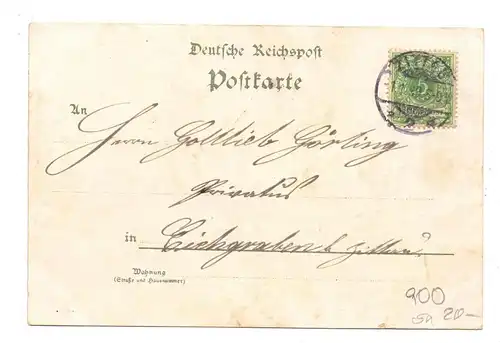 Deutsche Reichspost
Postkarte
An
Herrn Gottlieb Görling
Privatus
in Eichgraben b. Zittau
Wohnung
(Straße und Hausnummer)
ZITTAU
5
900
20-